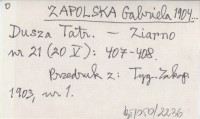 ZAPOLSKA Gabriela 1904...
Dusza Tatr. – Ziarno
nr 21 (20 V): 407-408.
Przedruk z: Tyg. Zakop.
1903, nr 1.
1950/2236